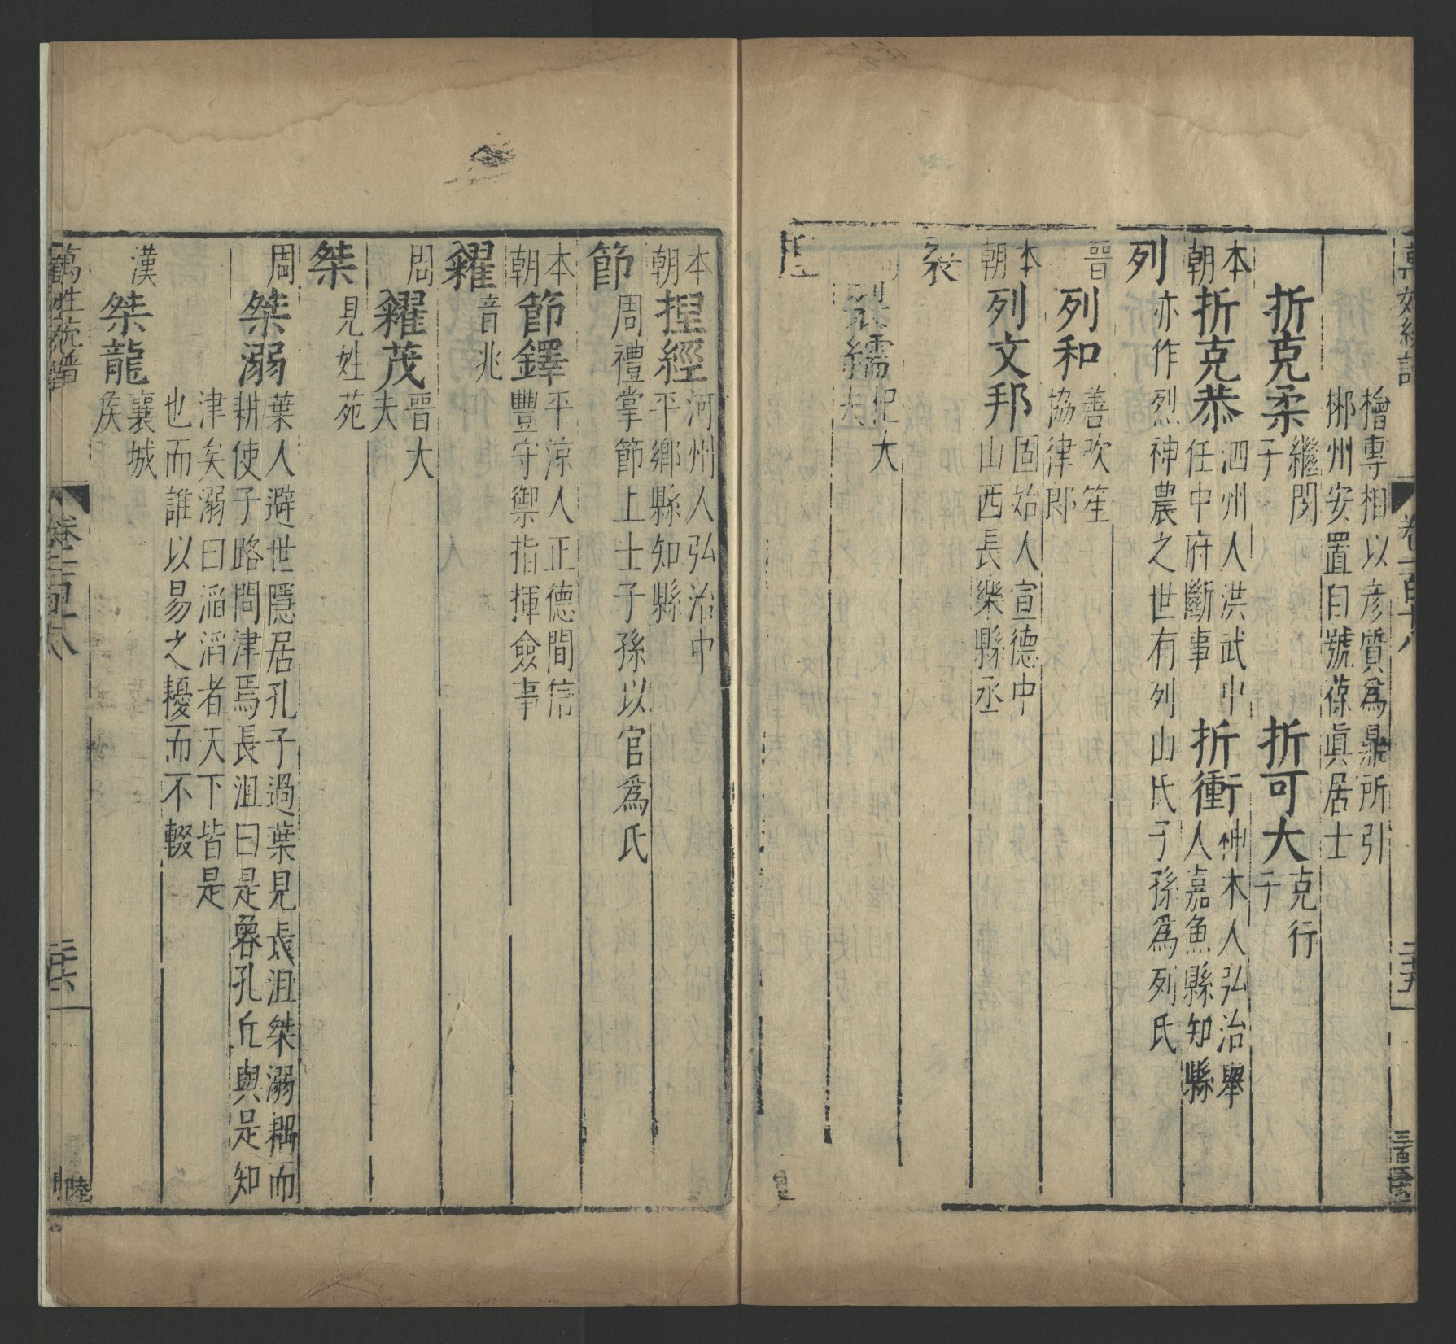 檜專相以彥質爲鼎所引
郴州安置自號葆眞居士
折克柔繼閔子
折可大克行子
本朝
折克恭泗州人洪武中任中府斷事
折衝神木人弘治舉人嘉魚縣知縣
列亦作烈神農之世有列山氏子孫爲列氏
晉
列和善吹笙協律郎
本朝
列文邦固始人宣德中山西長樂縣丞
裂繻紀大夫
本朝
揑經河州人弘治中平鄉縣知縣
節周禮掌節上士子孫以官爲氏
本朝
節鐸平涼人正德間信豐守禦指揮僉事
糴音兆
周
糴茂晉大夫
桀見姓苑
周
桀溺葉人避世隱居孔子過葉見長沮桀溺耦而
耕使子路問津焉長沮曰是魯孔丘與是知
津矣溺曰滔滔者天下皆是
也而誰以易之耰而不輟
漢
桀龍襄城侯
萬姓統譜